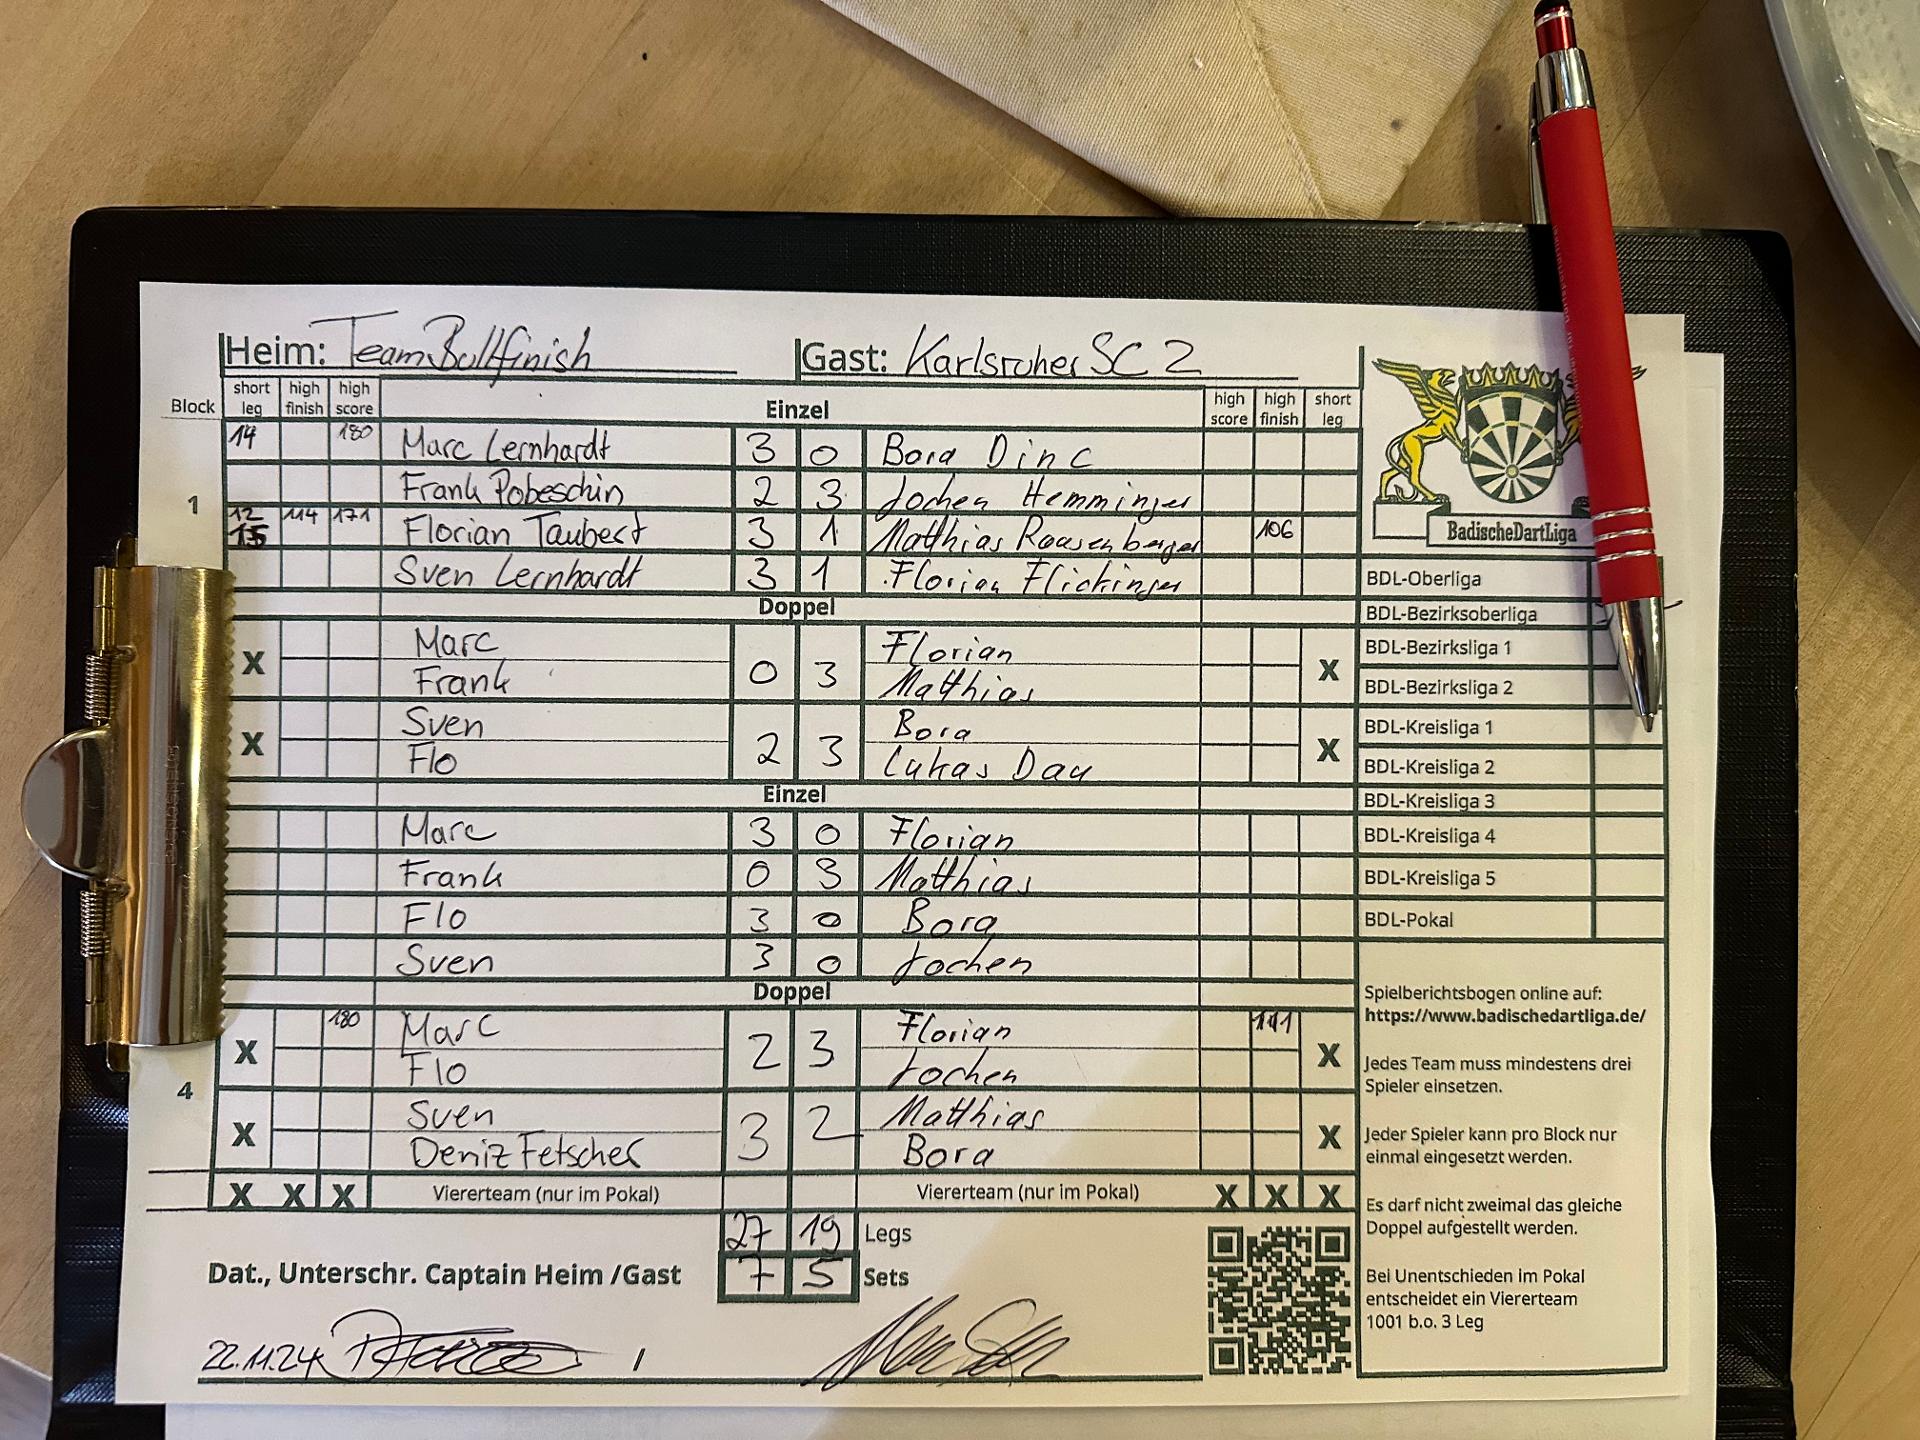 Heim: Team Bullfinish Gast: Karlsruher SC 2
Block short leg high finish high score Einzel high score high finish short leg
14 180 Marc Lernhardt 3 0 Bora Dinc
1 Frank Pobeschin 2 3 Jochen Hemminger
12 15 114 171 Florian Taubert 3 1 Matthias Raasenberger 106
Sven Lernhardt 3 1 Florian Flickinger
Doppel
X Marc 0 3 Florian X
Frank Matthias
X Sven 2 3 Bora X
Flo Lukas Dau
Einzel
Marc 3 0 Florian
Frank 0 3 Matthias
Flo 3 0 Bora
Sven 3 0 Jochen
Doppel
X 180 Marc 2 3 Florian 141 X
Flo Jochen
4
X Sven 3 2 Matthias X
Deniz Fetscher Bora
X X X Viererteam (nur im Pokal) Viererteam (nur im Pokal) X X X
27 19 Legs
Dat., Unterschr. Captain Heim /Gast 7 5 Sets
22.11.24 /
BadischeDartLiga
BDL-Oberliga
BDL-Bezirksoberliga
BDL-Bezirksliga 1
BDL-Bezirksliga 2
BDL-Kreisliga 1
BDL-Kreisliga 2
BDL-Kreisliga 3
BDL-Kreisliga 4
BDL-Kreisliga 5
BDL-Pokal
Spielberichtsbogen online auf:
https://www.badischedartliga.de/
Jedes Team muss mindestens drei
Spieler einsetzen.
Jeder Spieler kann pro Block nur
einmal eingesetzt werden.
Es darf nicht zweimal das gleiche
Doppel aufgestellt werden.
Bei Unentschieden im Pokal
entscheidet ein Viererteam
1001 b.o. 3 Leg